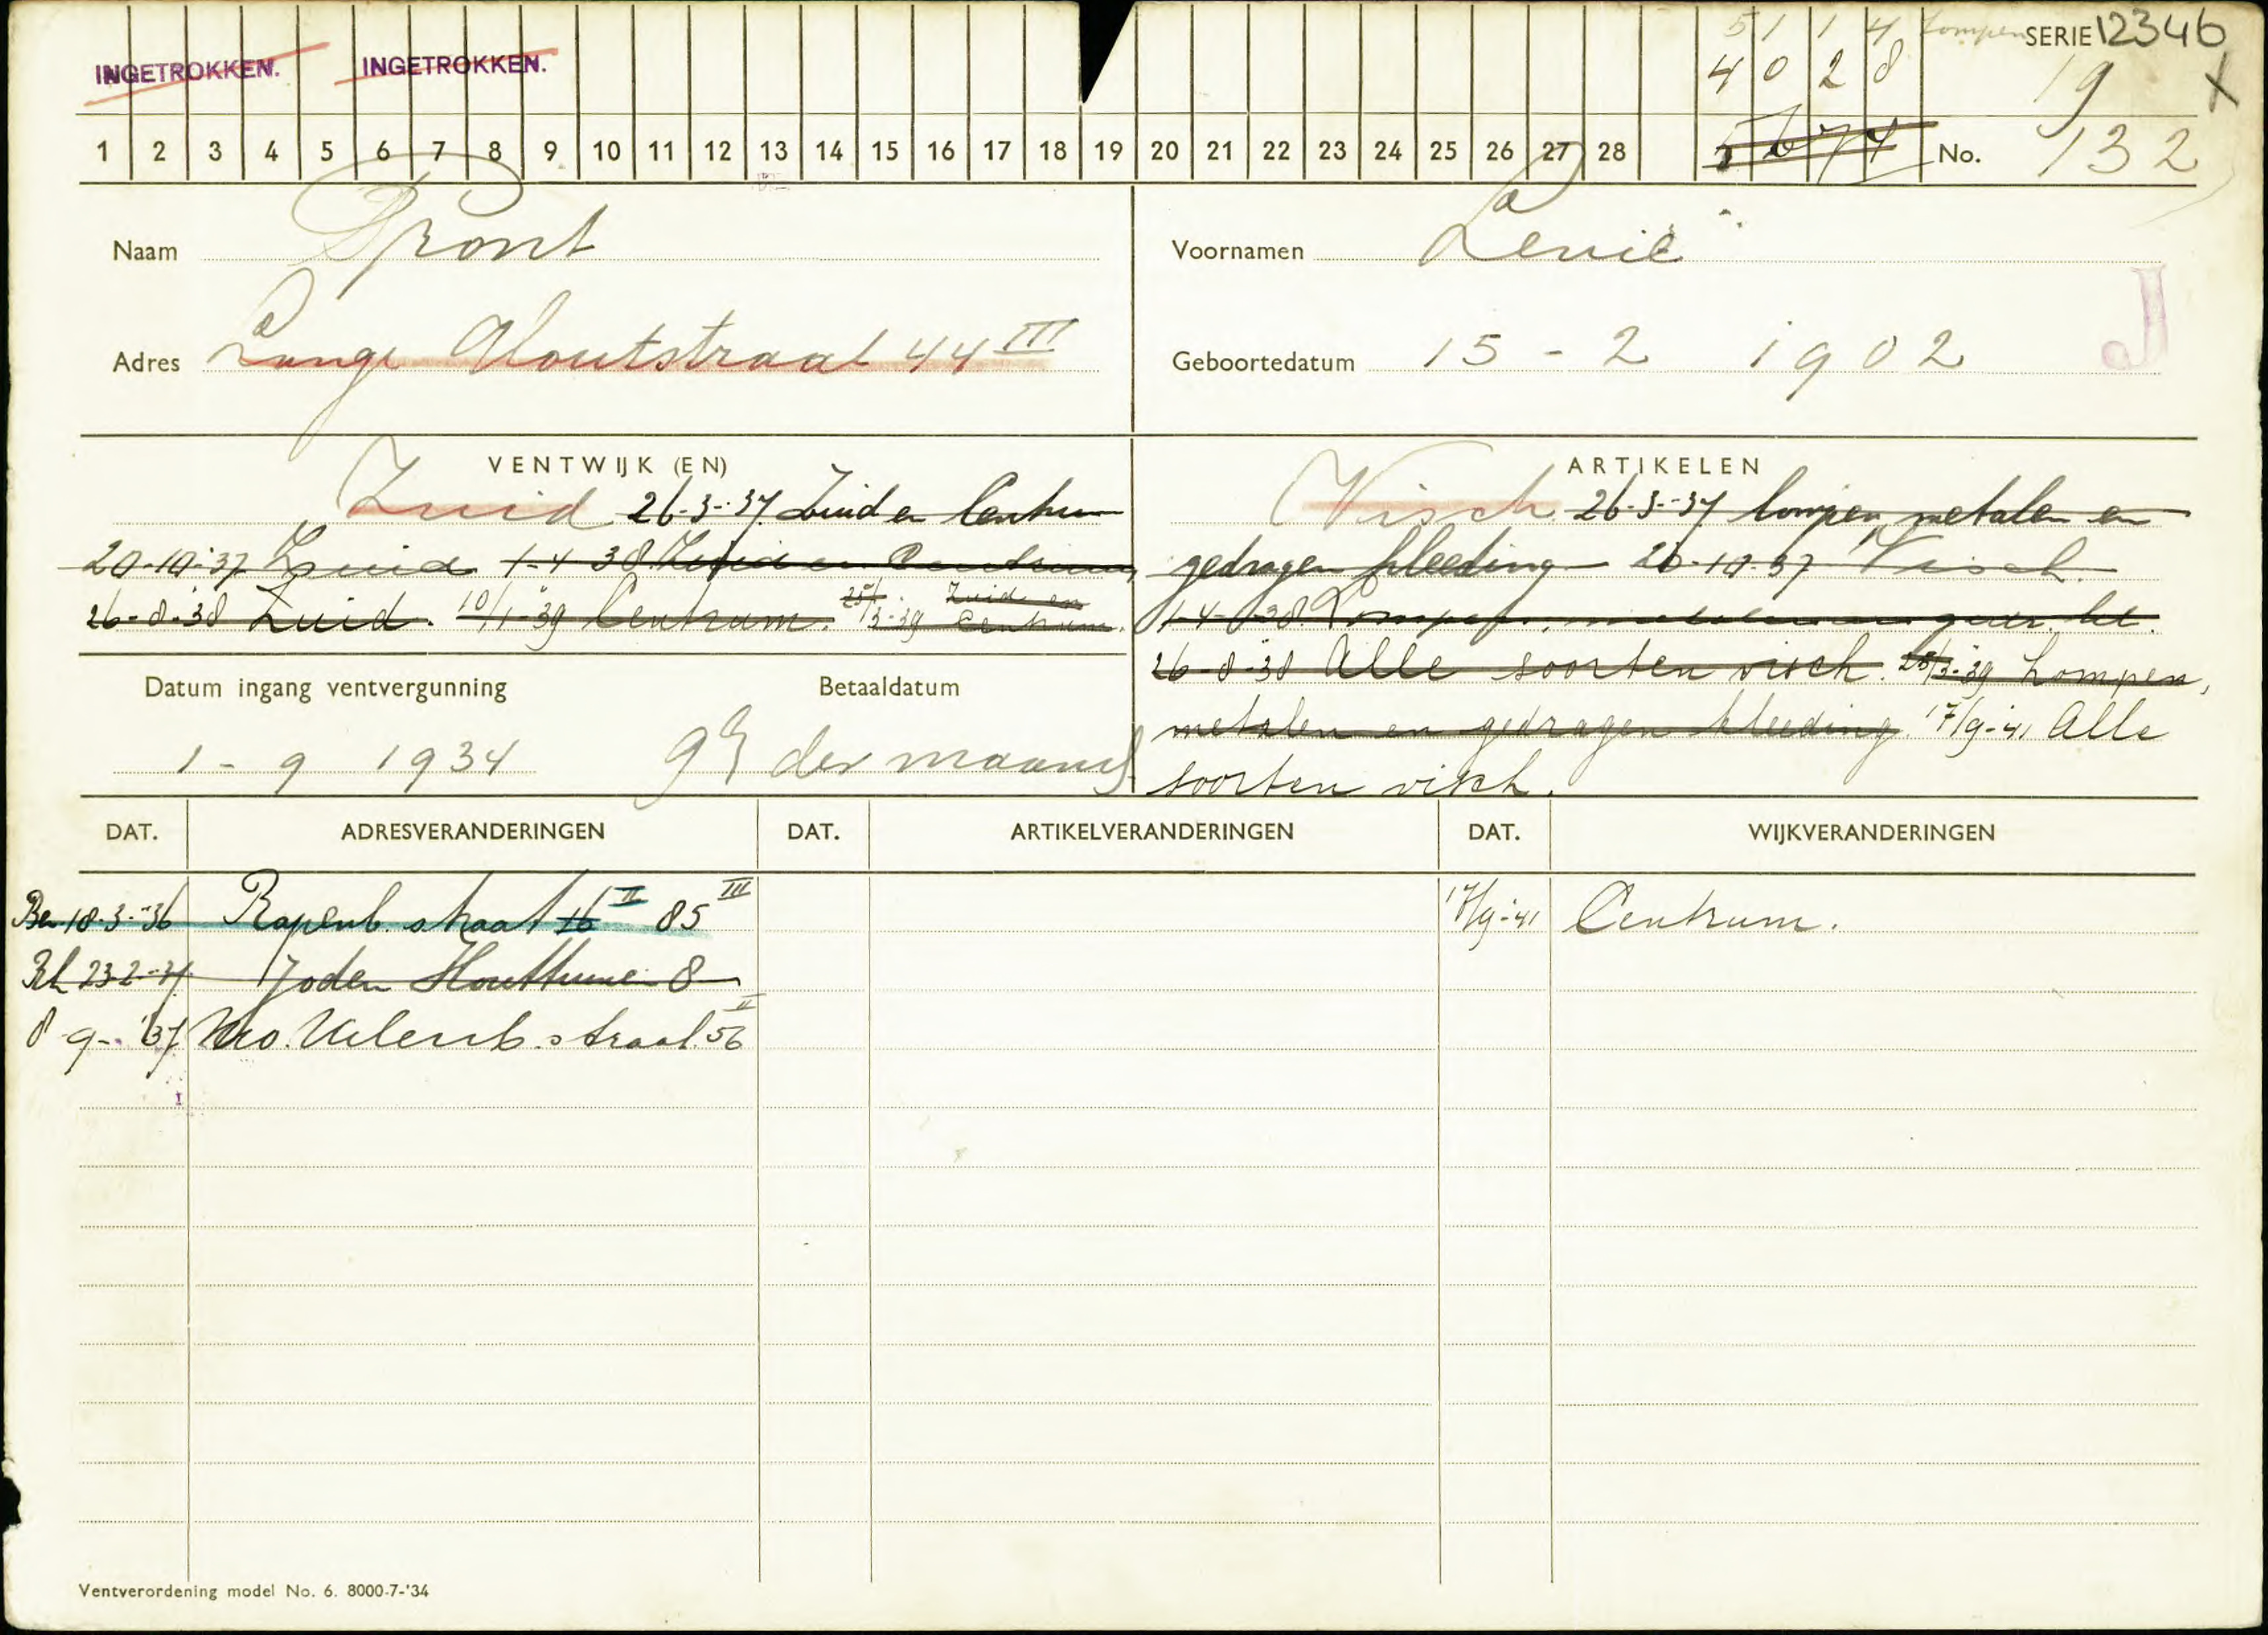 5 1 1 4 Lompen SERIE 12346
INGETROKKEN. INGETROKKEN. 4 0 2 8 19 X
1 2 3 4 5 6 7 8 9 10 11 12 13 14 15 16 17 18 19 20 21 22 23 24 25 26 27 28 5 6 7 4 No. 132
Naam Pront
Voornamen Levie
Adres Lange Houtstraat 44 III
Geboortedatum 15 - 2 1902
J
VENTWIJK (EN)
Zuid 26-3-'37. Zuid en Centrum
20-10-'37 Zuid 1-4 38 Zuid en Centrum
26-8-'38 Zuid. 10/1-'39 Centrum. 25/3-'39 Zuid en Centrum.
ARTIKELEN
Visch. 26-3-'37 lompen, metalen en
gedragen kleeding 20-10-37 Visch.
1-4-'38 Lompen, metalen en gedr. kl.
26-8-'38 Alle soorten visch. 25/3-'39 Lompen,
metalen en gedragen kleeding. 17/9-'41 Alle
soorten visch.
Datum ingang ventvergunning Betaaldatum
1 - 9 1934 9e der maand
DAT. ADRESVERANDERINGEN DAT. ARTIKELVERANDERINGEN DAT. WIJKVERANDERINGEN
18-3-'36 Rapenb. straat 16 II 85 III 17/9-'41 Centrum.
23-2-'37 Joden Houttuinen 8
8-9-'37 Nw. Uilenb. straat 56 II
Ventverordening model No. 6. 8000-7-'34